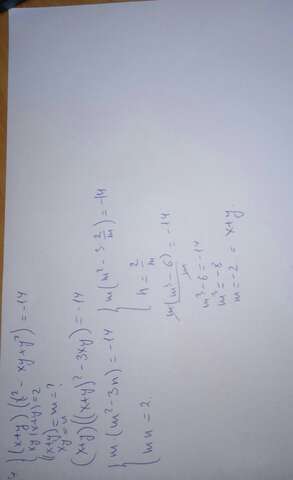 {(x+y)(x² - xy + y²) = -14
xy(x+y) = 2
(x+y) = m = ?
xy = n
(x+y)((x+y)² - 3xy) = -14
{m(m² - 3n) = -14
mn = 2.
{m(m² - 3 2/m) = -14
n = 2/m
m(m³ - 6)/m = -14
m³ - 6 = -14
m³ = -8
m = -2 = x+y.